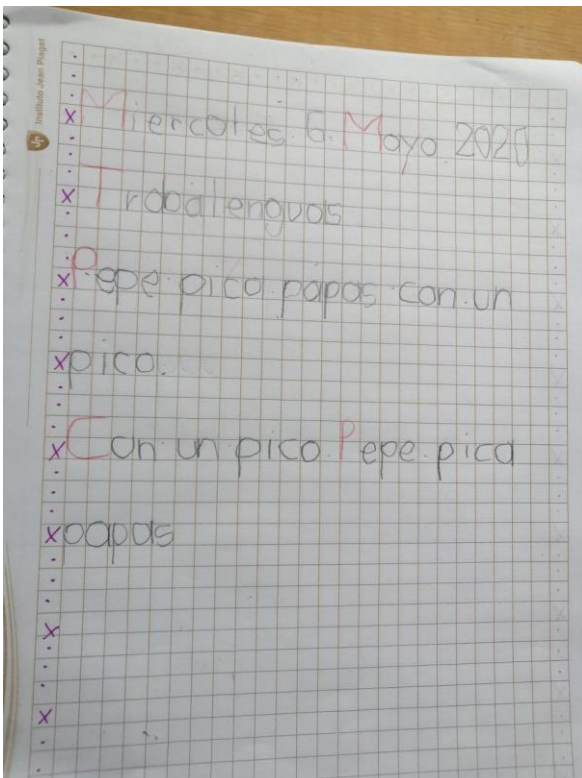 Instituto Jean Piaget
Miercoles 6 Mayo 2020
Trabalenguas
Pepe pica papas con un
pico.
Con un pico Pepe pica
papas